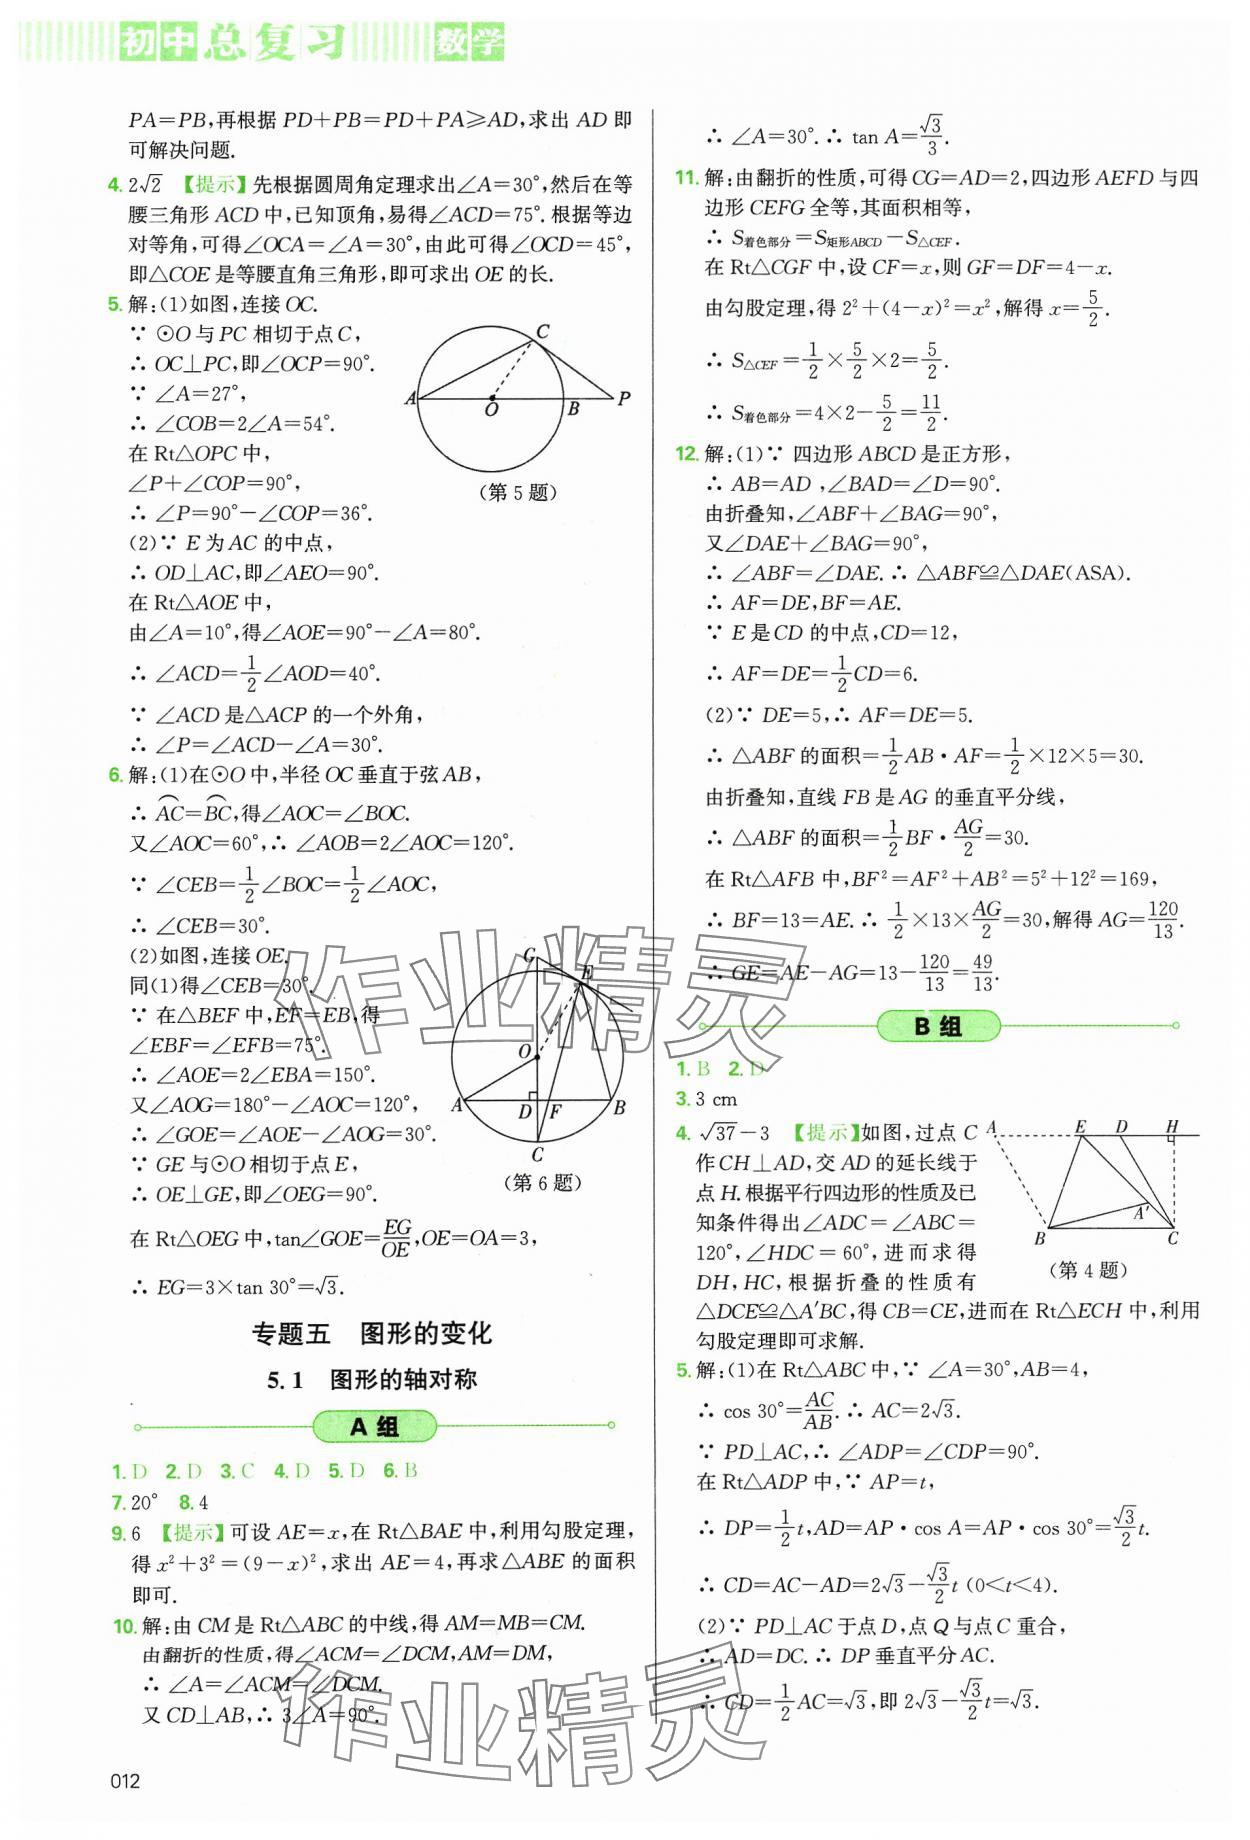 初中总复习 数学
PA=PB,再根据 PD+PB=PD+PA⩾AD,求出 AD 即
可解决问题.
4. 2√2 【提示】先根据圆周角定理求出∠A=30°,然后在等
腰三角形 ACD 中,已知顶角,易得∠ACD=75°.根据等边
对等角,可得∠OCA=∠A=30°,由此可得∠OCD=45°,
即△COE 是等腰直角三角形,即可求出 OE 的长.
5. 解:(1)如图,连接 OC.
∵ ⊙O 与 PC 相切于点 C,
∴ OC⊥PC,即∠OCP=90°.
∵ ∠A=27°,
∴ ∠COB=2∠A=54°.
在 Rt△OPC 中,
∠P+∠COP=90°,
∴ ∠P=90°-∠COP=36°.
A O B P C
(第 5 题)
(2)∵ E 为 AC 的中点,
∴ OD⊥AC,即∠AEO=90°.
在 Rt△AOE 中,
由∠A=10°,得∠AOE=90°-∠A=80°.
∴ ∠ACD=1/2∠AOD=40°.
∵ ∠ACD 是△ACP 的一个外角,
∴ ∠P=∠ACD-∠A=30°.
6. 解:(1)在⊙O 中,半径 OC 垂直于弦 AB,
∴ A͡C=B͡C,得∠AOC=∠BOC.
又∠AOC=60°,∴ ∠AOB=2∠AOC=120°.
∵ ∠CEB=1/2∠BOC=1/2∠AOC,
∴ ∠CEB=30°.
(2)如图,连接 OE.
同(1)得∠CEB=30°.
∵ 在△BEF 中,EF=EB,得
∠EBF=∠EFB=75°.
∴ ∠AOE=2∠EBA=150°.
又∠AOG=180°-∠AOC=120°,
∴ ∠GOE=∠AOE-∠AOG=30°.
∵ GE 与⊙O 相切于点 E,
∴ OE⊥GE,即∠OEG=90°.
G E O A D F B C
(第 6 题)
在 Rt△OEG 中,tan∠GOE=EG/OE,OE=OA=3,
∴ EG=3×tan 30°=√3.
专题五 图形的变化
5.1 图形的轴对称
A 组
1. D 2. D 3. C 4. D 5. D 6. B
7. 20° 8. 4
9. 6 【提示】可设 AE=x,在 Rt△BAE 中,利用勾股定理,
得 x²+3²=(9-x)²,求出 AE=4,再求△ABE 的面积
即可.
10. 解:由 CM 是 Rt△ABC 的中线,得 AM=MB=CM.
由翻折的性质,得∠ACM=∠DCM,AM=DM,
∴ ∠A=∠ACM=∠DCM.
又 CD⊥AB,∴ 3∠A=90°.
∴ ∠A=30°.∴ tan A=√3/3.
11. 解:由翻折的性质,可得 CG=AD=2,四边形 AEFD 与四
边形 CEFG 全等,其面积相等,
∴ S着色部分=S矩形ABCD-S△CEF.
在 Rt△CGF 中,设 CF=x,则 GF=DF=4-x.
由勾股定理,得 2²+(4-x)²=x²,解得 x=5/2.
∴ S△CEF=1/2×5/2×2=5/2.
∴ S着色部分=4×2-5/2=11/2.
12. 解:(1)∵ 四边形 ABCD 是正方形,
∴ AB=AD ,∠BAD=∠D=90°.
由折叠知,∠ABF+∠BAG=90°,
又∠DAE+∠BAG=90°,
∴ ∠ABF=∠DAE.∴ △ABF≌△DAE(ASA).
∴ AF=DE,BF=AE.
∵ E 是 CD 的中点,CD=12,
∴ AF=DE=1/2CD=6.
(2)∵ DE=5,∴ AF=DE=5.
∴ △ABF 的面积=1/2AB·AF=1/2×12×5=30.
由折叠知,直线 FB 是 AG 的垂直平分线,
∴ △ABF 的面积=1/2BF·AG/2=30.
在 Rt△AFB 中,BF²=AF²+AB²=5²+12²=169,
∴ BF=13=AE.∴ 1/2×13×AG/2=30,解得 AG=120/13.
∴ GE=AE-AG=13-120/13=49/13.
B 组
1. B 2. D
3. 3 cm
4. √37-3 【提示】如图,过点 C
作 CH⊥AD,交 AD 的延长线于
点 H.根据平行四边形的性质及已
知条件得出∠ADC=∠ABC=
120°,∠HDC=60°,进而求得
DH,HC,根据折叠的性质有
△DCE≌△A′BC,得 CB=CE,进而在 Rt△ECH 中,利用
勾股定理即可求解.
A E D H B A′ C
(第 4 题)
5. 解:(1)在 Rt△ABC 中,∵ ∠A=30°,AB=4,
∴ cos 30°=AC/AB.∴ AC=2√3.
∵ PD⊥AC,∴ ∠ADP=∠CDP=90°.
在 Rt△ADP 中,∵ AP=t,
∴ DP=1/2t,AD=AP·cos A=AP·cos 30°=√3/2t.
∴ CD=AC-AD=2√3-√3/2t (0<t<4).
(2)∵ PD⊥AC 于点 D,点 Q 与点 C 重合,
∴ AD=DC.∴ DP 垂直平分 AC.
∴ CD=1/2AC=√3,即 2√3-√3/2t=√3.
作业精灵
作业精灵
012